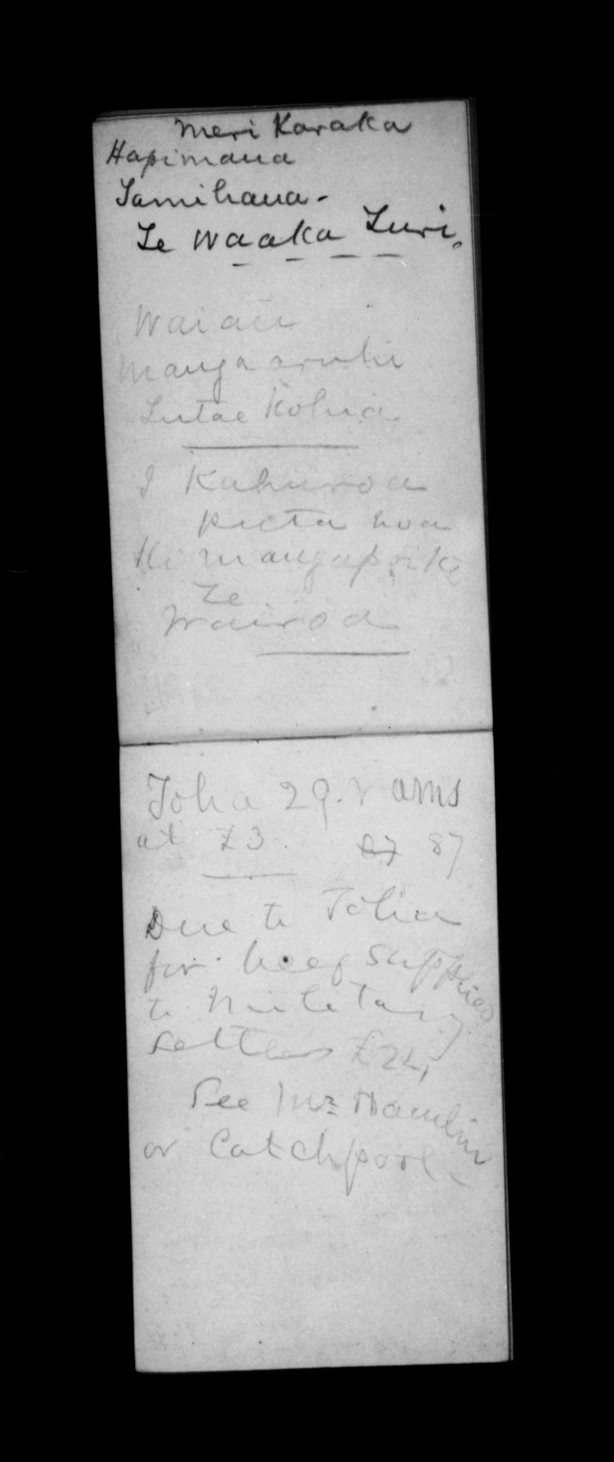 Meri Karaka
Hapimana
Tamihana -
Te Waaka Turi.
Waiau
Mangaaruhe
Tutae Kohia
I Kahuroa
Ki Mangapoike
Te
Wairoa
Toha 29. rams
at £3. 87 87
Due to Toha
for beef supplied
to Military
settlers £24,
See Mr Hamlin
or Catchpool -